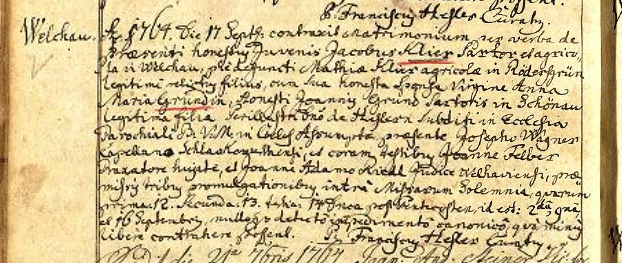 P. Franciscus Hesler Curatq.
Welchau. Aō 1764. Die 17 Septb: contraxit Matrimonium per verba de
Præsenti honestus Juvenis Jacobus Klier Sartor et agrico-
la in Welchau, p. defuncti Mathiæ Klier agricolæ in Rödersgrün
legitimè relictus filius, cum sua honesta Sponsa Virgine Anna
Maria Grundin, honesti Joannis Grund Sartoris in Schönau
legitima filia de Heslern Subditi in Ecclesia
Parochiali B: V: M: in Cœlos Assumptæ, præsente Josepho Wagner
et coram testibus Joanne Felber
Braxatore hujate, et Joanni Adamo Riedl Judice Welhaviensi, præ-
missis tribus promulgationibus intra Missarum Solemnia, quarum
prima 12. Secunda 13. tertia 14 Dnca post Pentecosten, id est: 2da 9na
et 16 Septembris, nulloque detecto impedimento canonico, quò minus
liberè contrahere possent. P. Franciscus Hesler Curatq.